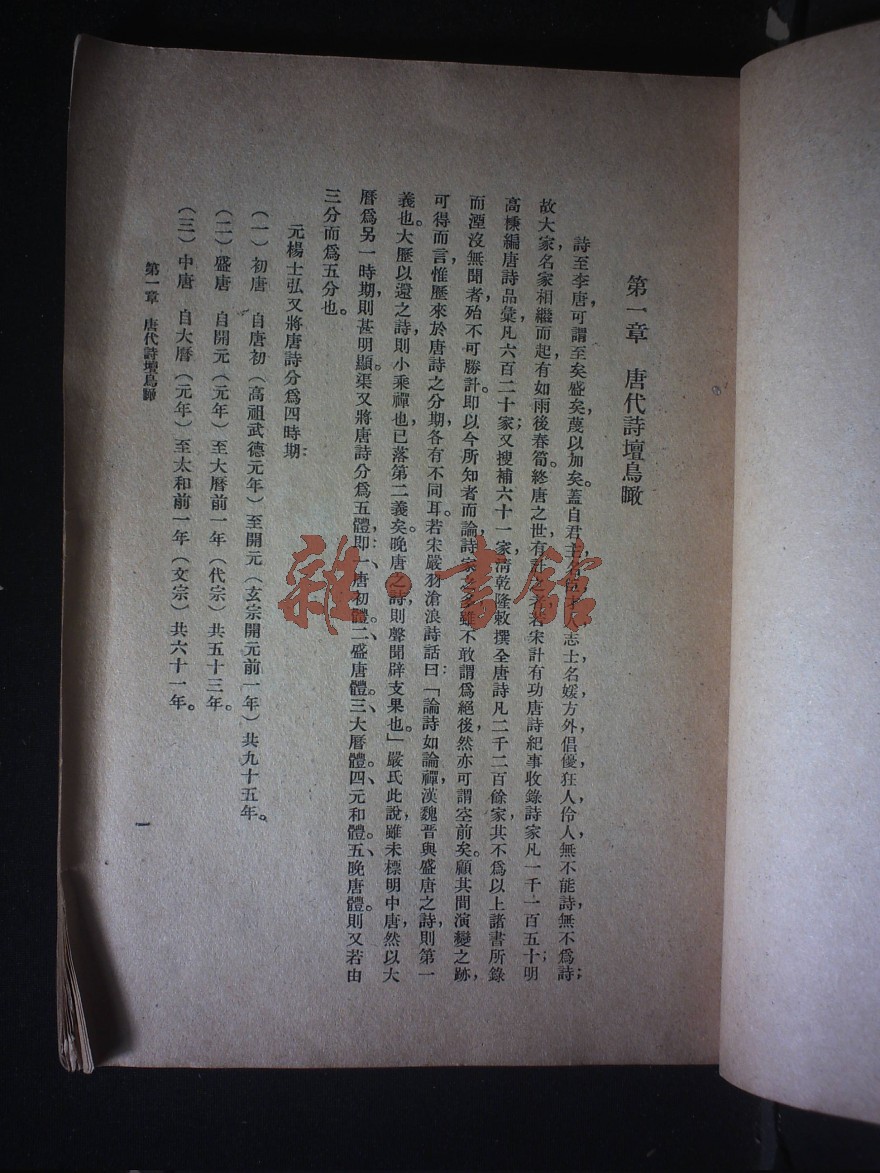 第一章　唐代詩壇鳥瞰
詩至李唐，可謂至矣盛矣，蔑以加矣。蓋自君主名臣，才人志士，名媛方外，倡優狂人，伶人，無不能詩，無不爲詩；
故大家名家，相繼而起，有如雨後春筍。終唐之世，有計之者，若宋計有功唐詩紀事收錄詩家凡一千一百五十；明
高棅編唐詩品彙凡六百二十家；又搜補六十一家，清乾隆敕撰全唐詩凡二千二百餘家，其不爲以上諸書所錄
而湮沒無聞者，殆不可勝計。即以今所知者而論，詩家之多，雖不敢謂爲絕後，然亦可謂空前矣。顧其間演變之跡，
可得而言，惟歷來於唐詩之分期，各有不同耳。若宋嚴羽滄浪詩話曰：「論詩如論禪，漢魏晉與盛唐之詩，則第一
義也。大歷以還之詩，則小乘禪也，已落第二義矣。晚唐之詩，則聲聞辟支果也。」嚴氏此說，雖未標明中唐，然以大
曆爲另一時期，則甚明顯。渠又將唐詩分爲五體，即：一、唐初體。二、盛唐體。三、大曆體。四、元和體。五、晚唐體。則又若由
三分而爲五分也。
元楊士弘又將唐詩分爲四時期：
（一）初唐　自唐初（高祖武德元年）至開元（玄宗開元前一年）共九十五年。
（二）盛唐　自開元（元年）至大曆前一年（代宗）共五十三年。
（三）中唐　自大曆（元年）至太和前一年（文宗）共六十一年。
第一章　唐代詩壇鳥瞰
一
雜·書館